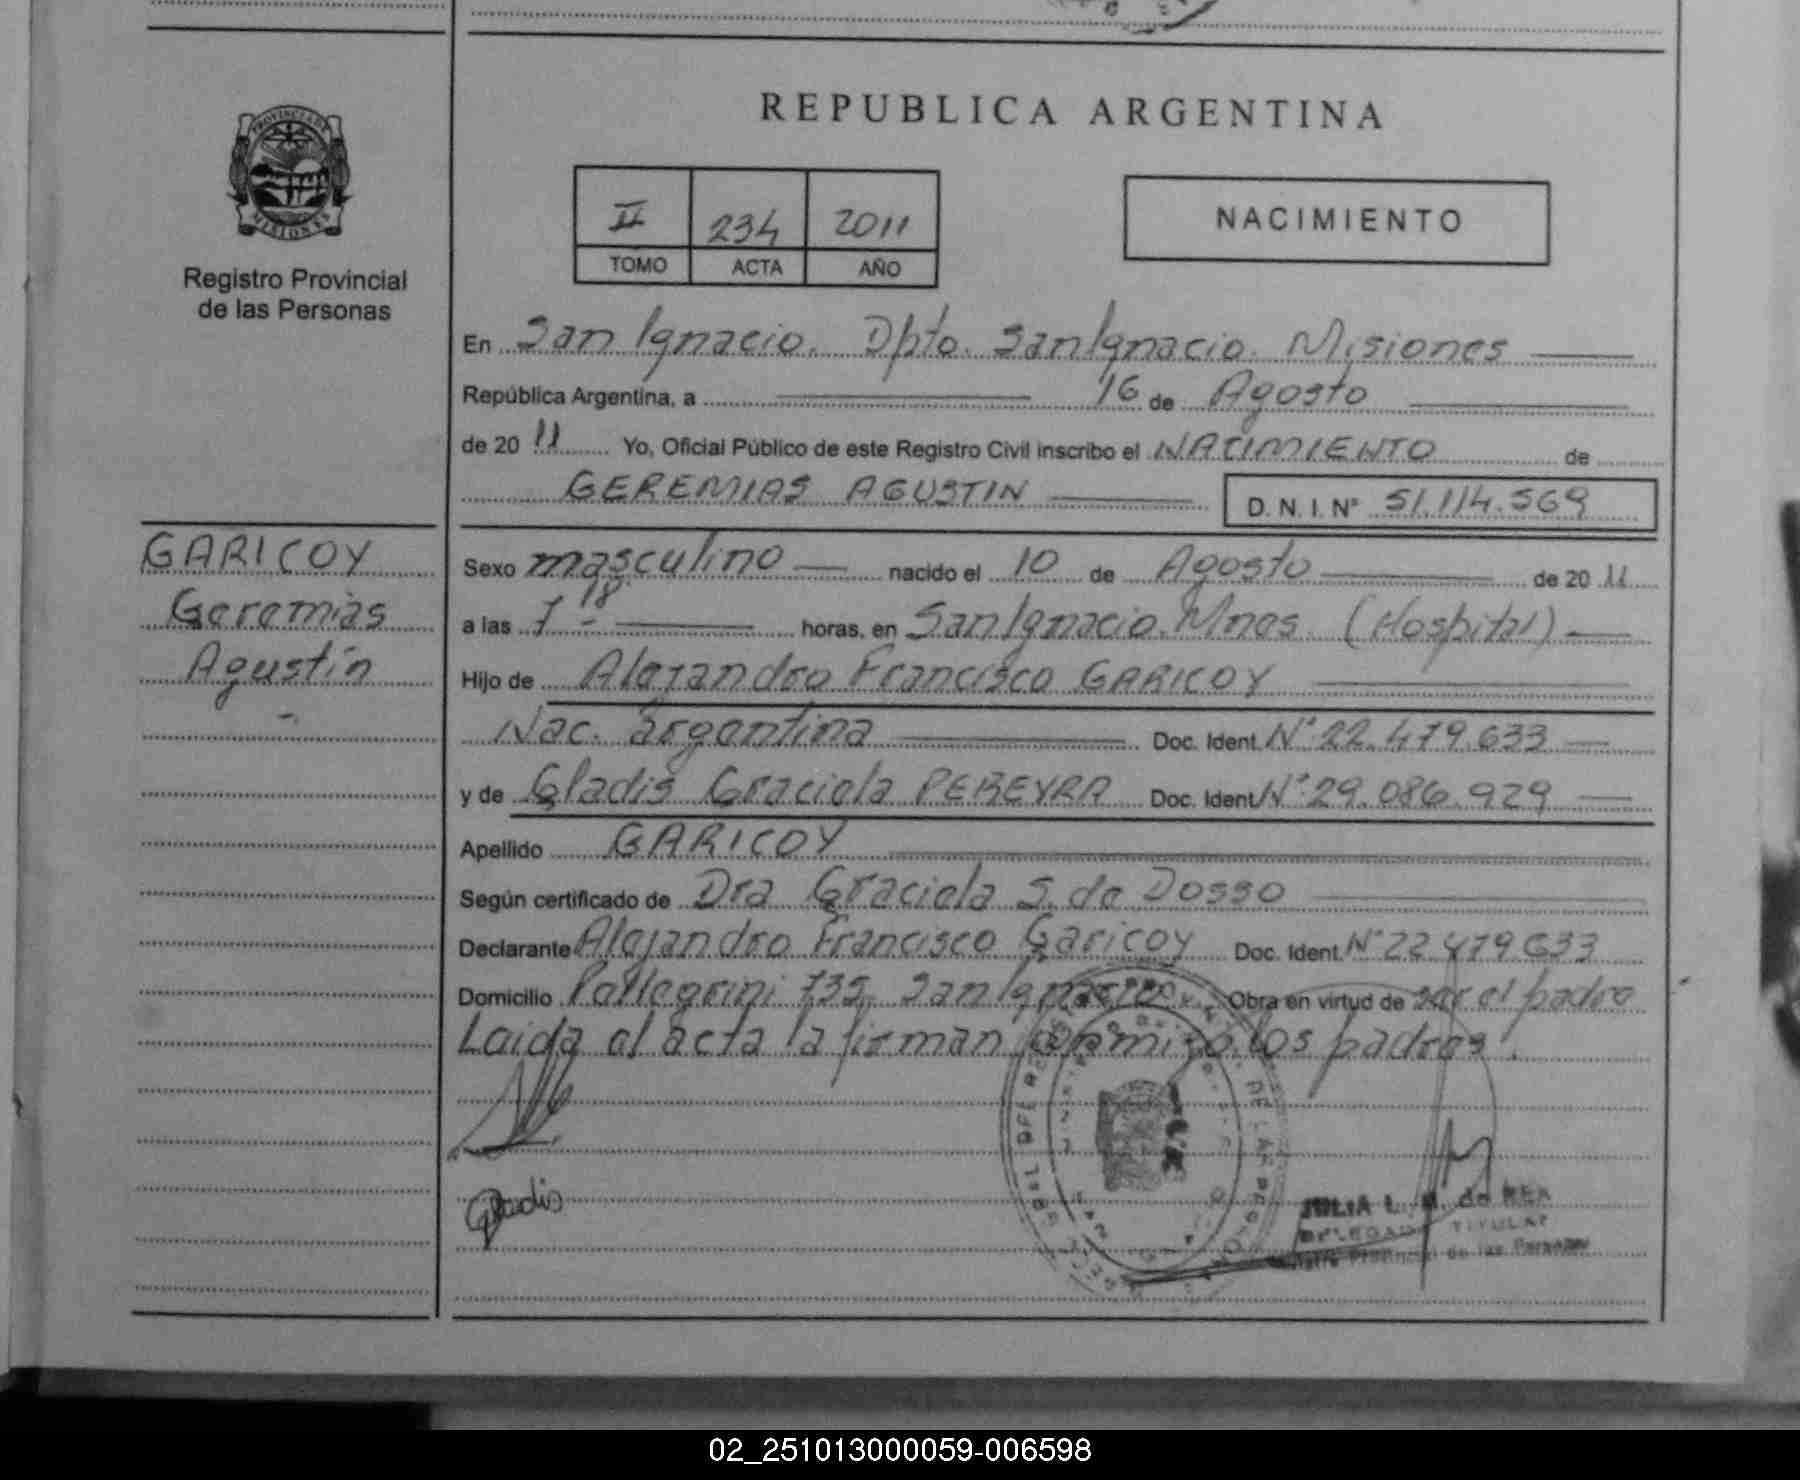 PROVINCIA DE
MISIONES
Registro Provincial
de las Personas
REPUBLICA ARGENTINA
II 234 2011
TOMO ACTA AÑO
NACIMIENTO
En San Ignacio. Dpto. San Ignacio. Misiones
República Argentina, a 16 de Agosto
de 20 11 Yo, Oficial Público de este Registro Civil inscribo el NACIMIENTO de
GEREMIAS AGUSTIN D. N. I. Nº 51.114.569
GARICOY
Geremias
Agustín
Sexo masculino nacido el 10 de Agosto de 20 11
a las 7 18 horas, en San Ignacio. Mnes. (Hospital)
Hijo de Alejandro Francisco GARICOY
Nac. argentina Doc. Ident. Nº 22.479.633
y de Gladis Graciela PEREYRA Doc. Ident Nº 29.086.929
Apellido GARICOY
Según certificado de Dra Graciela S. de Dosso
Declarante Alejandro Francisco Garicoy Doc. Ident. Nº 22.479.633
Domicilio Pellegrini 735. San Ignacio Obra en virtud de ser el padre
Leida el acta la firman conmigo los padres.
Gladis
JULIA L. de REY
DELEGADA TITULAR
Provincial de las Personas
02_251013000059-006598